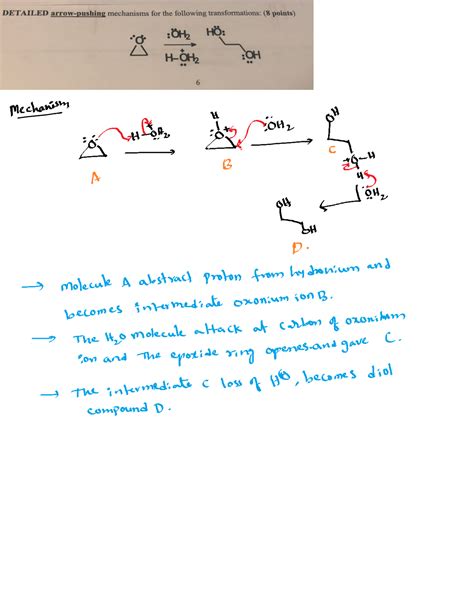 DETAILED arrow-pushing mechanisms for the following transformations: (8 points)
:Ö: :ÖH₂ HÖ:
H–ÖH₂⁺ :ÖH
6
Mechanism,
H
:OH₂ OH
A B C
:ÖH₂
OH
OH
D.
→ Molecule A abstract proton from hydronium and
becomes intermediate oxonium ion B.
→ The H₂O molecule attack at carbon of oxonium
ion and the epoxide ring openes and gave C.
→ The intermediate C loss of H⊕, becomes diol
compound D.